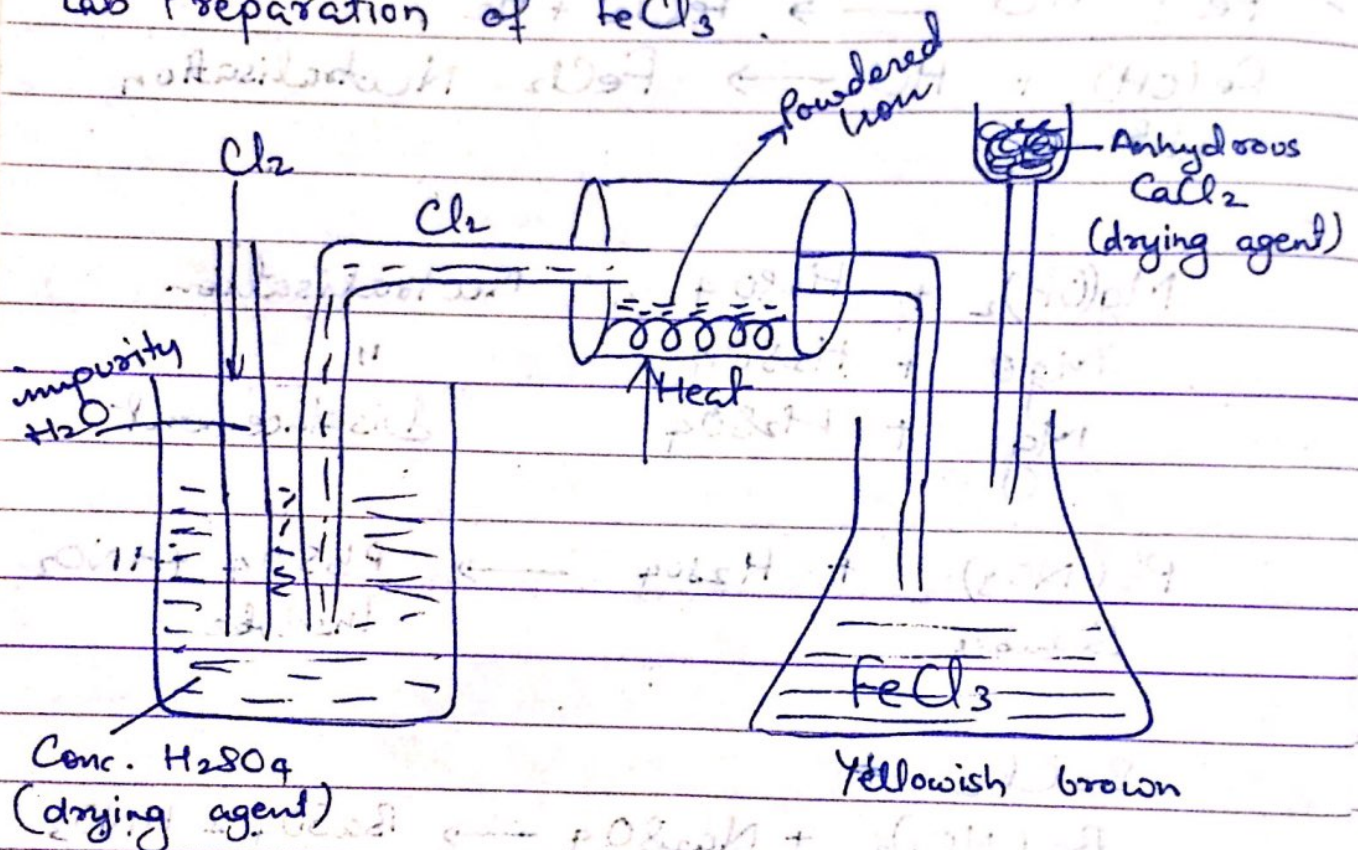 Lab Preparation of FeCl3.
Powdered
Iron
Cl2
Cl2
Anhydrous
CaCl2
(drying agent)
impurity
H2O
Heat
FeCl3
Conc. H2SO4
(drying agent)
Yellowish brown